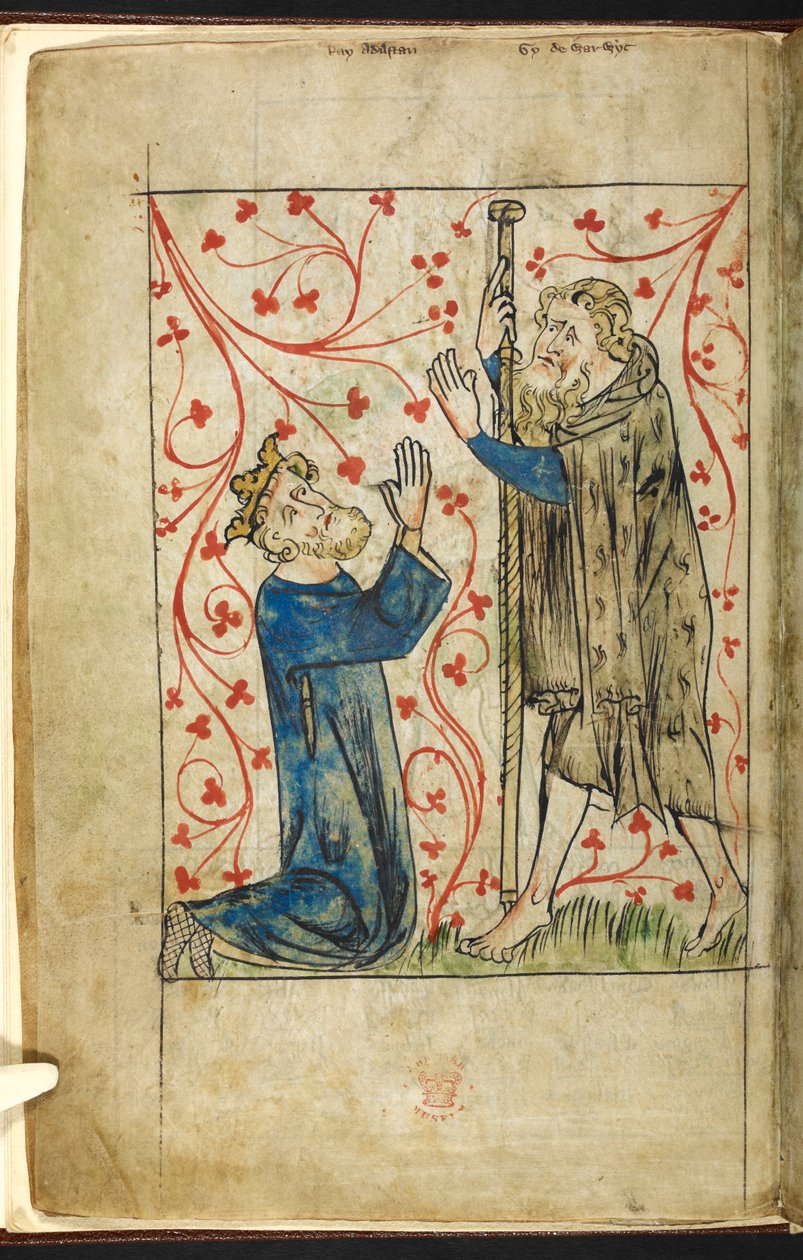 Ray Adelstan Gy de Warwyc
MUSEUM